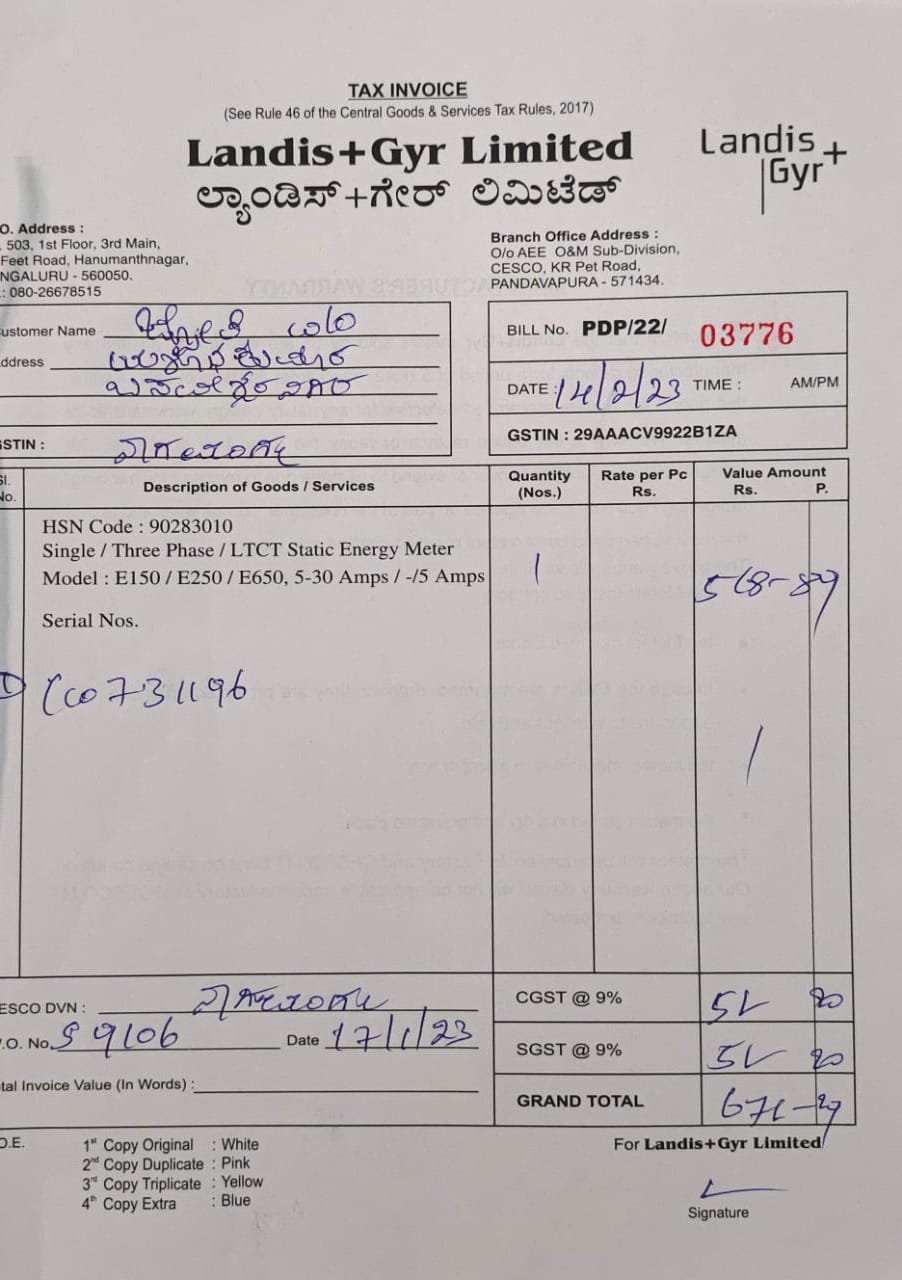 TAX INVOICE
(See Rule 46 of the Central Goods & Services Tax Rules, 2017)
Landis+Gyr Limited
ಲ್ಯಾಂಡಿಸ್+ಗೇರ್ ಲಿಮಿಟೆಡ್
Landis
Gyr+
O. Address :
503, 1st Floor, 3rd Main,
Feet Road, Hanumanthnagar,
NGALURU - 560050.
: 080-26678515
Branch Office Address :
O/o AEE O&M Sub-Division,
CESCO, KR Pet Road,
PANDAVAPURA - 571434.
ustomer Name
ddress
STIN :
BILL No. PDP/22/ 03776
DATE : 14/2/23 TIME : AM/PM
GSTIN : 29AAACV9922B1ZA
Sl. No. Description of Goods / Services Quantity (Nos.) Rate per Pc Rs. Value Amount Rs. P.
HSN Code : 90283010
Single / Three Phase / LTCT Static Energy Meter
Model : E150 / E250 / E650, 5-30 Amps / -/5 Amps 1 568-89
Serial Nos.
ESCO DVN :
CGST @ 9% 51 20
.O. No. 59106 Date 17/1/23
SGST @ 9% 51 20
tal Invoice Value (In Words) :
GRAND TOTAL 671-29
O.E.
1st Copy Original : White
2nd Copy Duplicate : Pink
3rd Copy Triplicate : Yellow
4th Copy Extra : Blue
For Landis+Gyr Limited
Signature